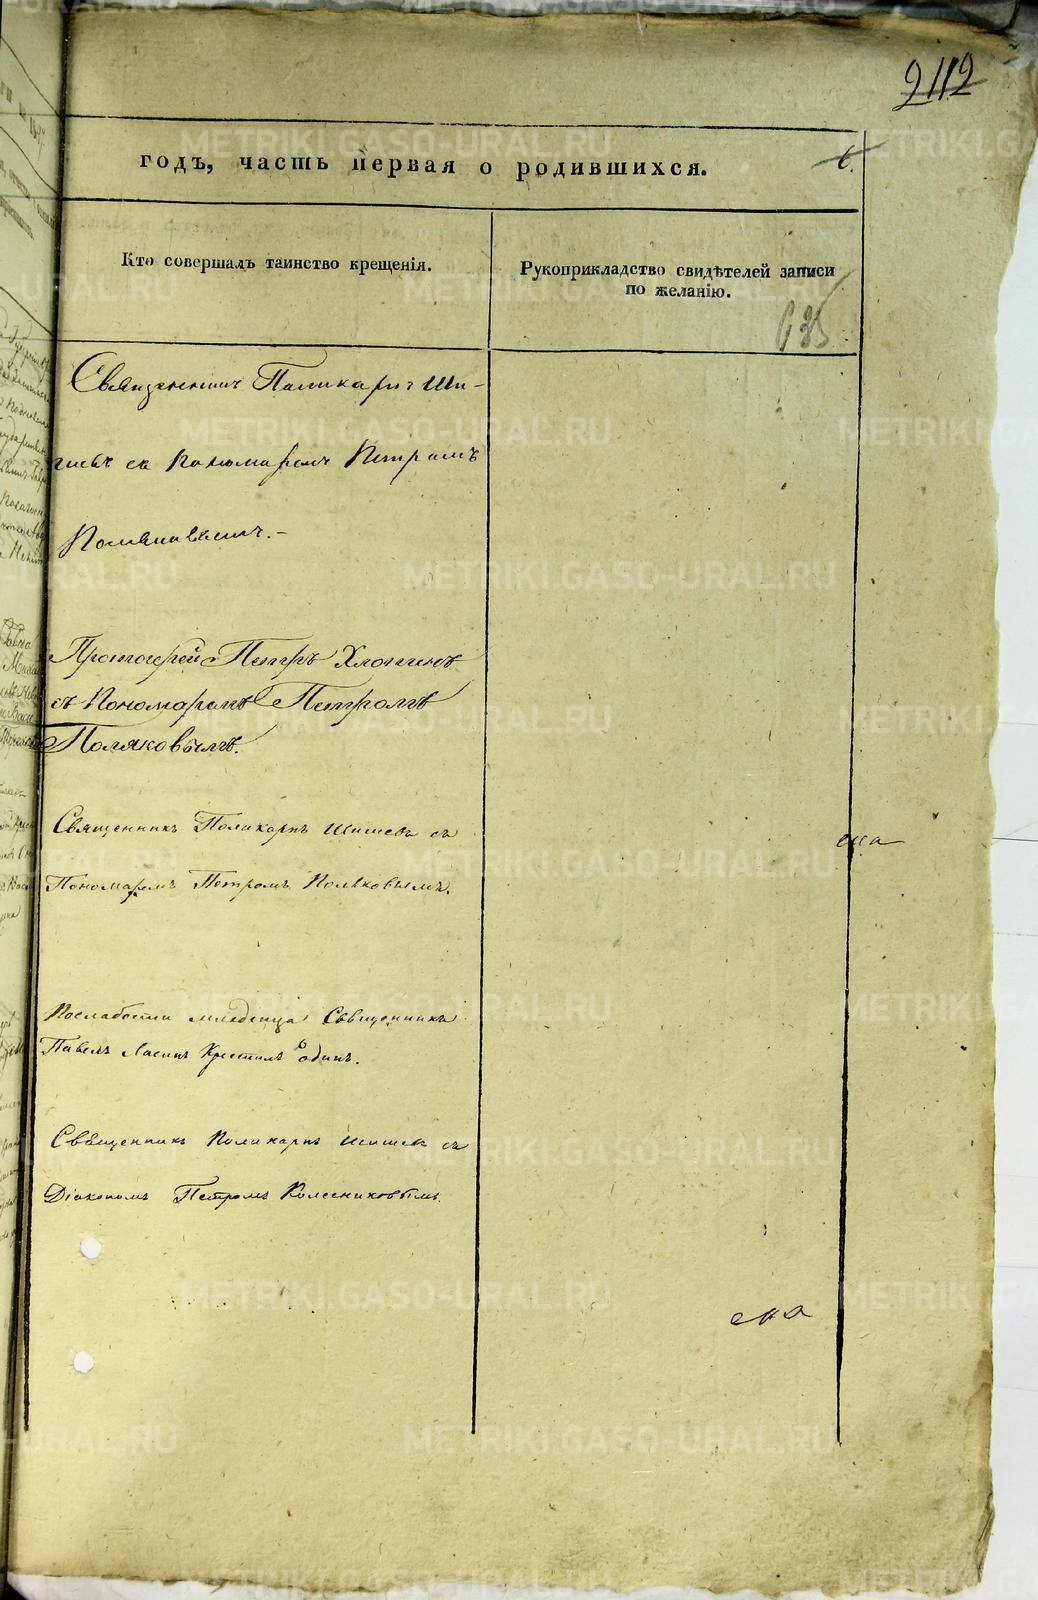 2112
годъ, часть первая о родившихся.
6.
Кто совершалъ таинство крещенія.
Рукоприкладство свидѣтелей записи
по желанію.
635
Священникъ Поликарпъ Ши-
шевъ съ Пономаремъ Петромъ
Поляковымъ.-
Протоіерей Петръ Хлопинъ
съ Пономаромъ Петромъ
Поляковымъ.
Священникъ Поликарпъ Шишевъ съ
Пономаромъ Петромъ Поляковымъ.
Послабости младенца Священникъ
Павелъ Крестилъ одинъ.
Священникъ Поликарпъ Шишевъ съ
Діакономъ Петромъ Колесниковымъ.
METRIKI.GASO-URAL.RU